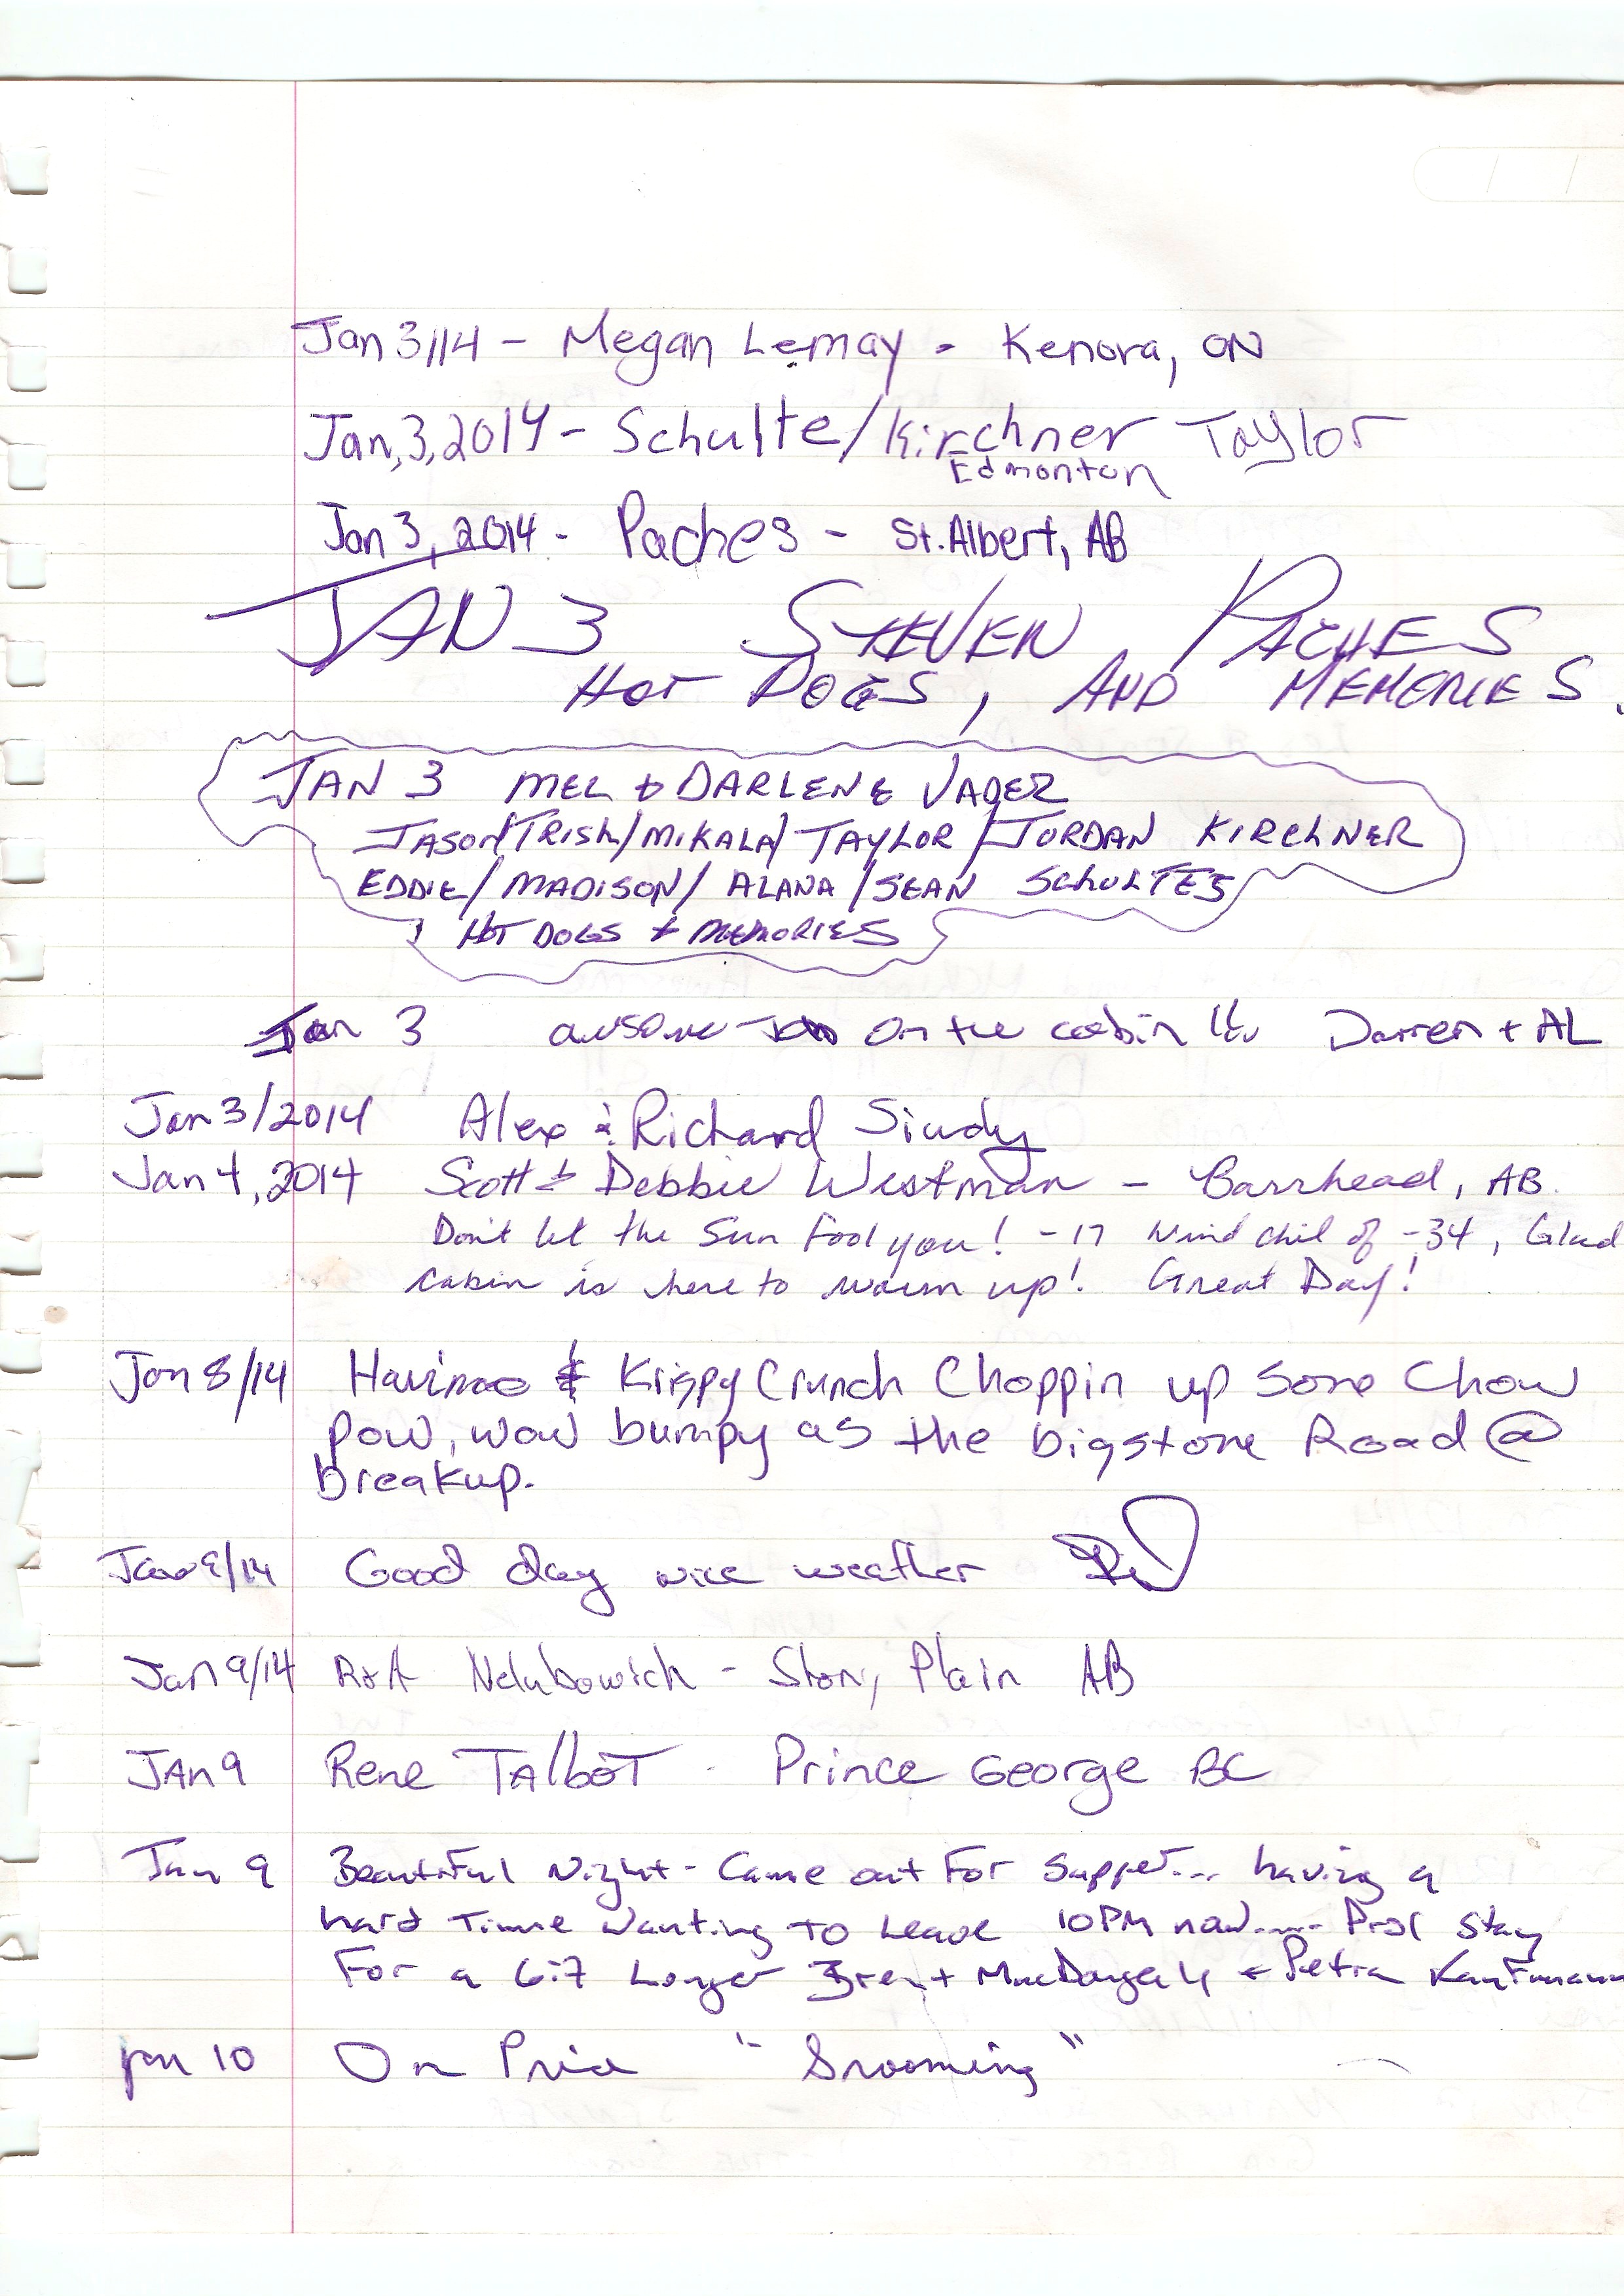 Jan 3/14 - Megan Lemay - Kenora, ON
Jan, 3, 2014 - Schulte/Kirchner Taylor
Edmonton
Jan 3, 2014 - Paches - St. Albert, AB
JAN 3 STEVEN PACHES
HOT DOGS, AND MEMORIES.
JAN 3 MEL + DARLENE VADER
JASON/TRISH/MIKALA/TAYLOR/JORDAN KIRCHNER
EDDIE/MADISON/ALANA/SEAN SCHULTES
HOT DOGS + MEMORIES
Jan 3 on the cabin Darren + AL
Jan 3/2014 Alex & Richard Siudy
Jan 4, 2014 Scott + Debbie Westman - Barrhead, AB.
Don't let the Sun fool you! -17 Wind chil of -34, Glad
cabin is here to warm up! Great Day!
Jan 8/14 & Krispy Crunch Choppin up some Chow
pow, wow bumpy as the bigstone Road @
breakup.
Good day nice weather
Jan 9/14 R+A - Stony Plain AB
JAn 9 Rene TAlboT - Prince George BC
Jan 9 Beautiful Night - Came out For Supper... having a
hard Time Wanting To Leave 10PM now.... Stay
For a bit Longer Brent MacDougall + Petra Kaufmann
Jan 10 On Price "Grooming"